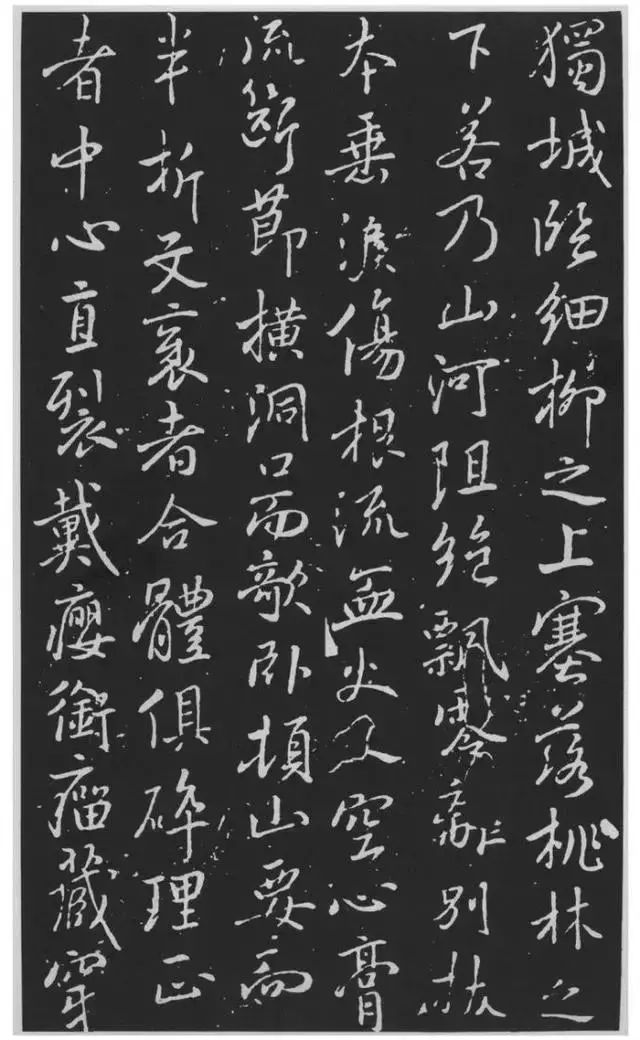 獨城臨細柳之上塞落桃林之
下若乃山河阻絕飄零離別拔
本垂淚傷根流血火入空心膏
流斷節橫洞口而欹卧頓山要而
半折文衺者合體俱碎理正
者中心直裂戴癭銜瘤藏穿